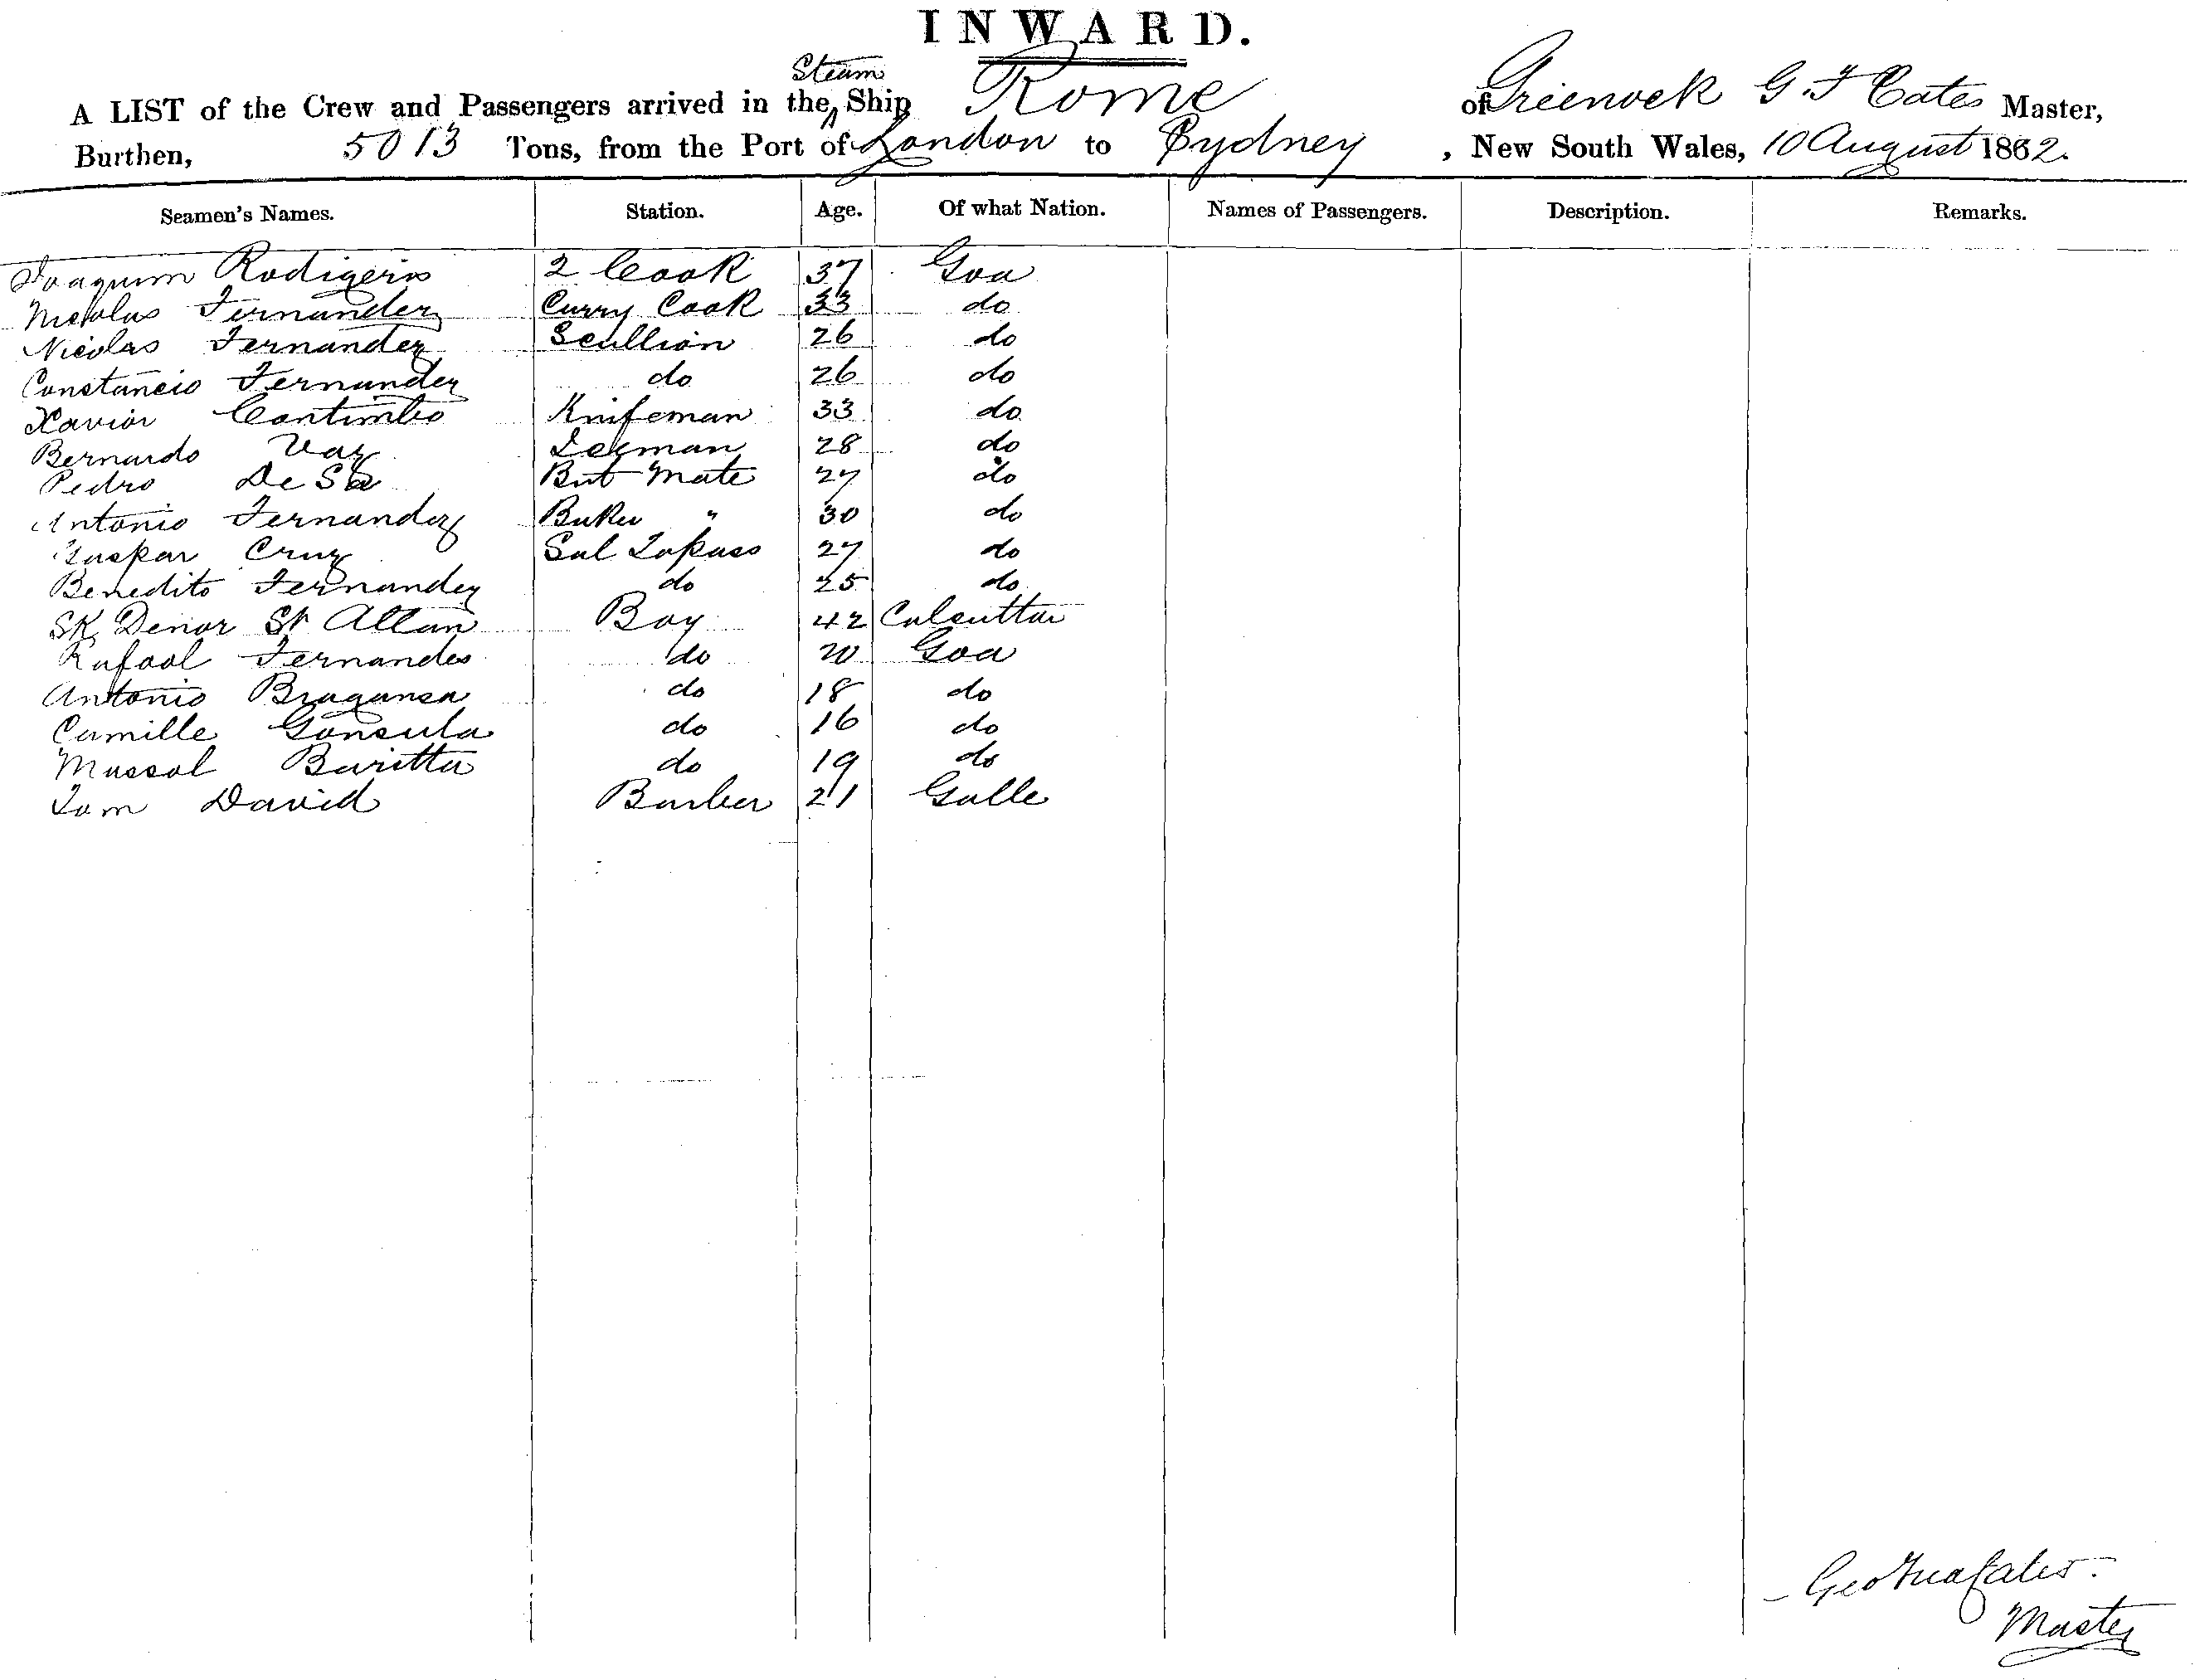 INWARD.
A LIST of the Crew and Passengers arrived in the Steam Ship Rome of Greenock G. F Cates Master,
Burthen, 5013 Tons, from the Port of London to Sydney, New South Wales, 10 August 1882.
Seamen's Names. Station. Age. Of what Nation. Names of Passengers. Description. Remarks.
Joaquim Rodigeris 2 Cook 37 Goa
Nicolas Fernandez Curry Cook 33 do
Nicolas Fernandez Scullion 26 do
Constancio Fernandez do 26 do
Xavior Contimbo Knifeman 33 do
Bernardo Vaz 28 do
Pedro De Sa But Mate 27 do
Antonio Fernandez Baker " 30 do
Gaspar Cruz Sal Topass 27 do
Benedito Fernandez do 25 do
SK Denor SK Allan Boy 42 Calcutta
Rafael Fernandes do 20 Goa
Antonio Bragansa do 18 do
Camille Gonsula do 16 do
Baritta do 19 do
Tom David Barber 21 Galle
Master